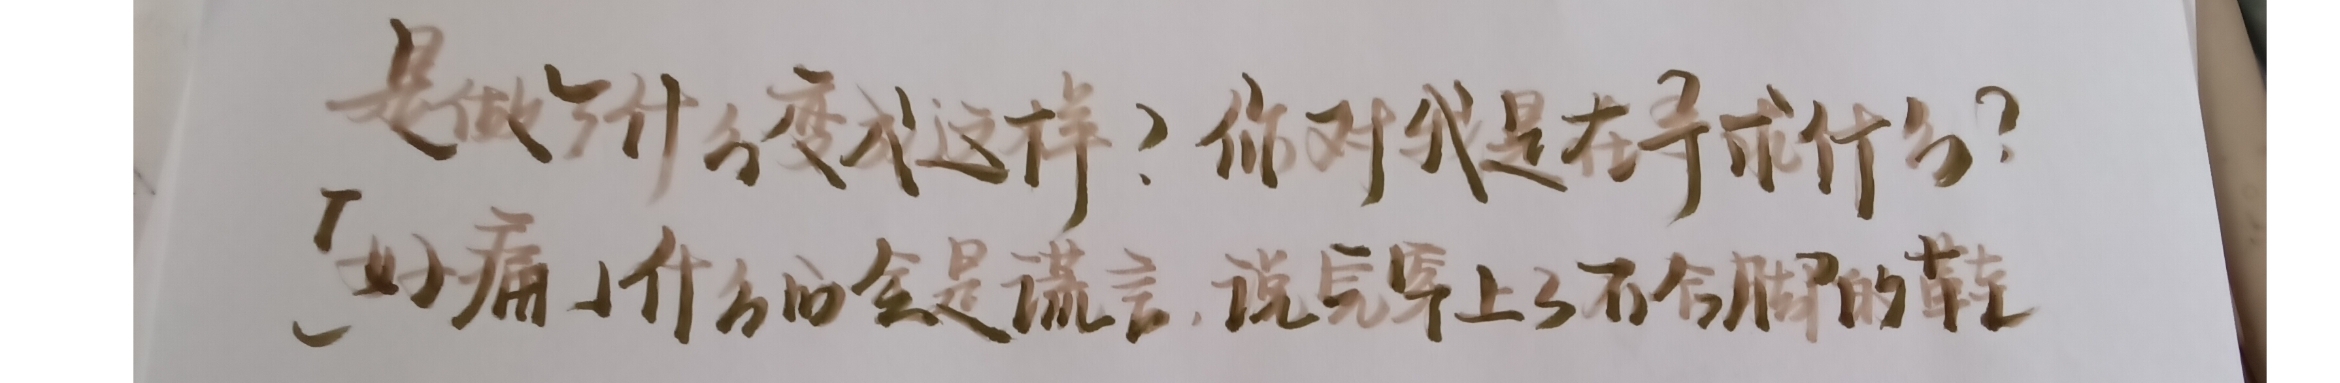 是做了什么变成这样?你对我是在寻求什么?
「好痛」什么的全是谎言,说与穿上了不合脚的鞋